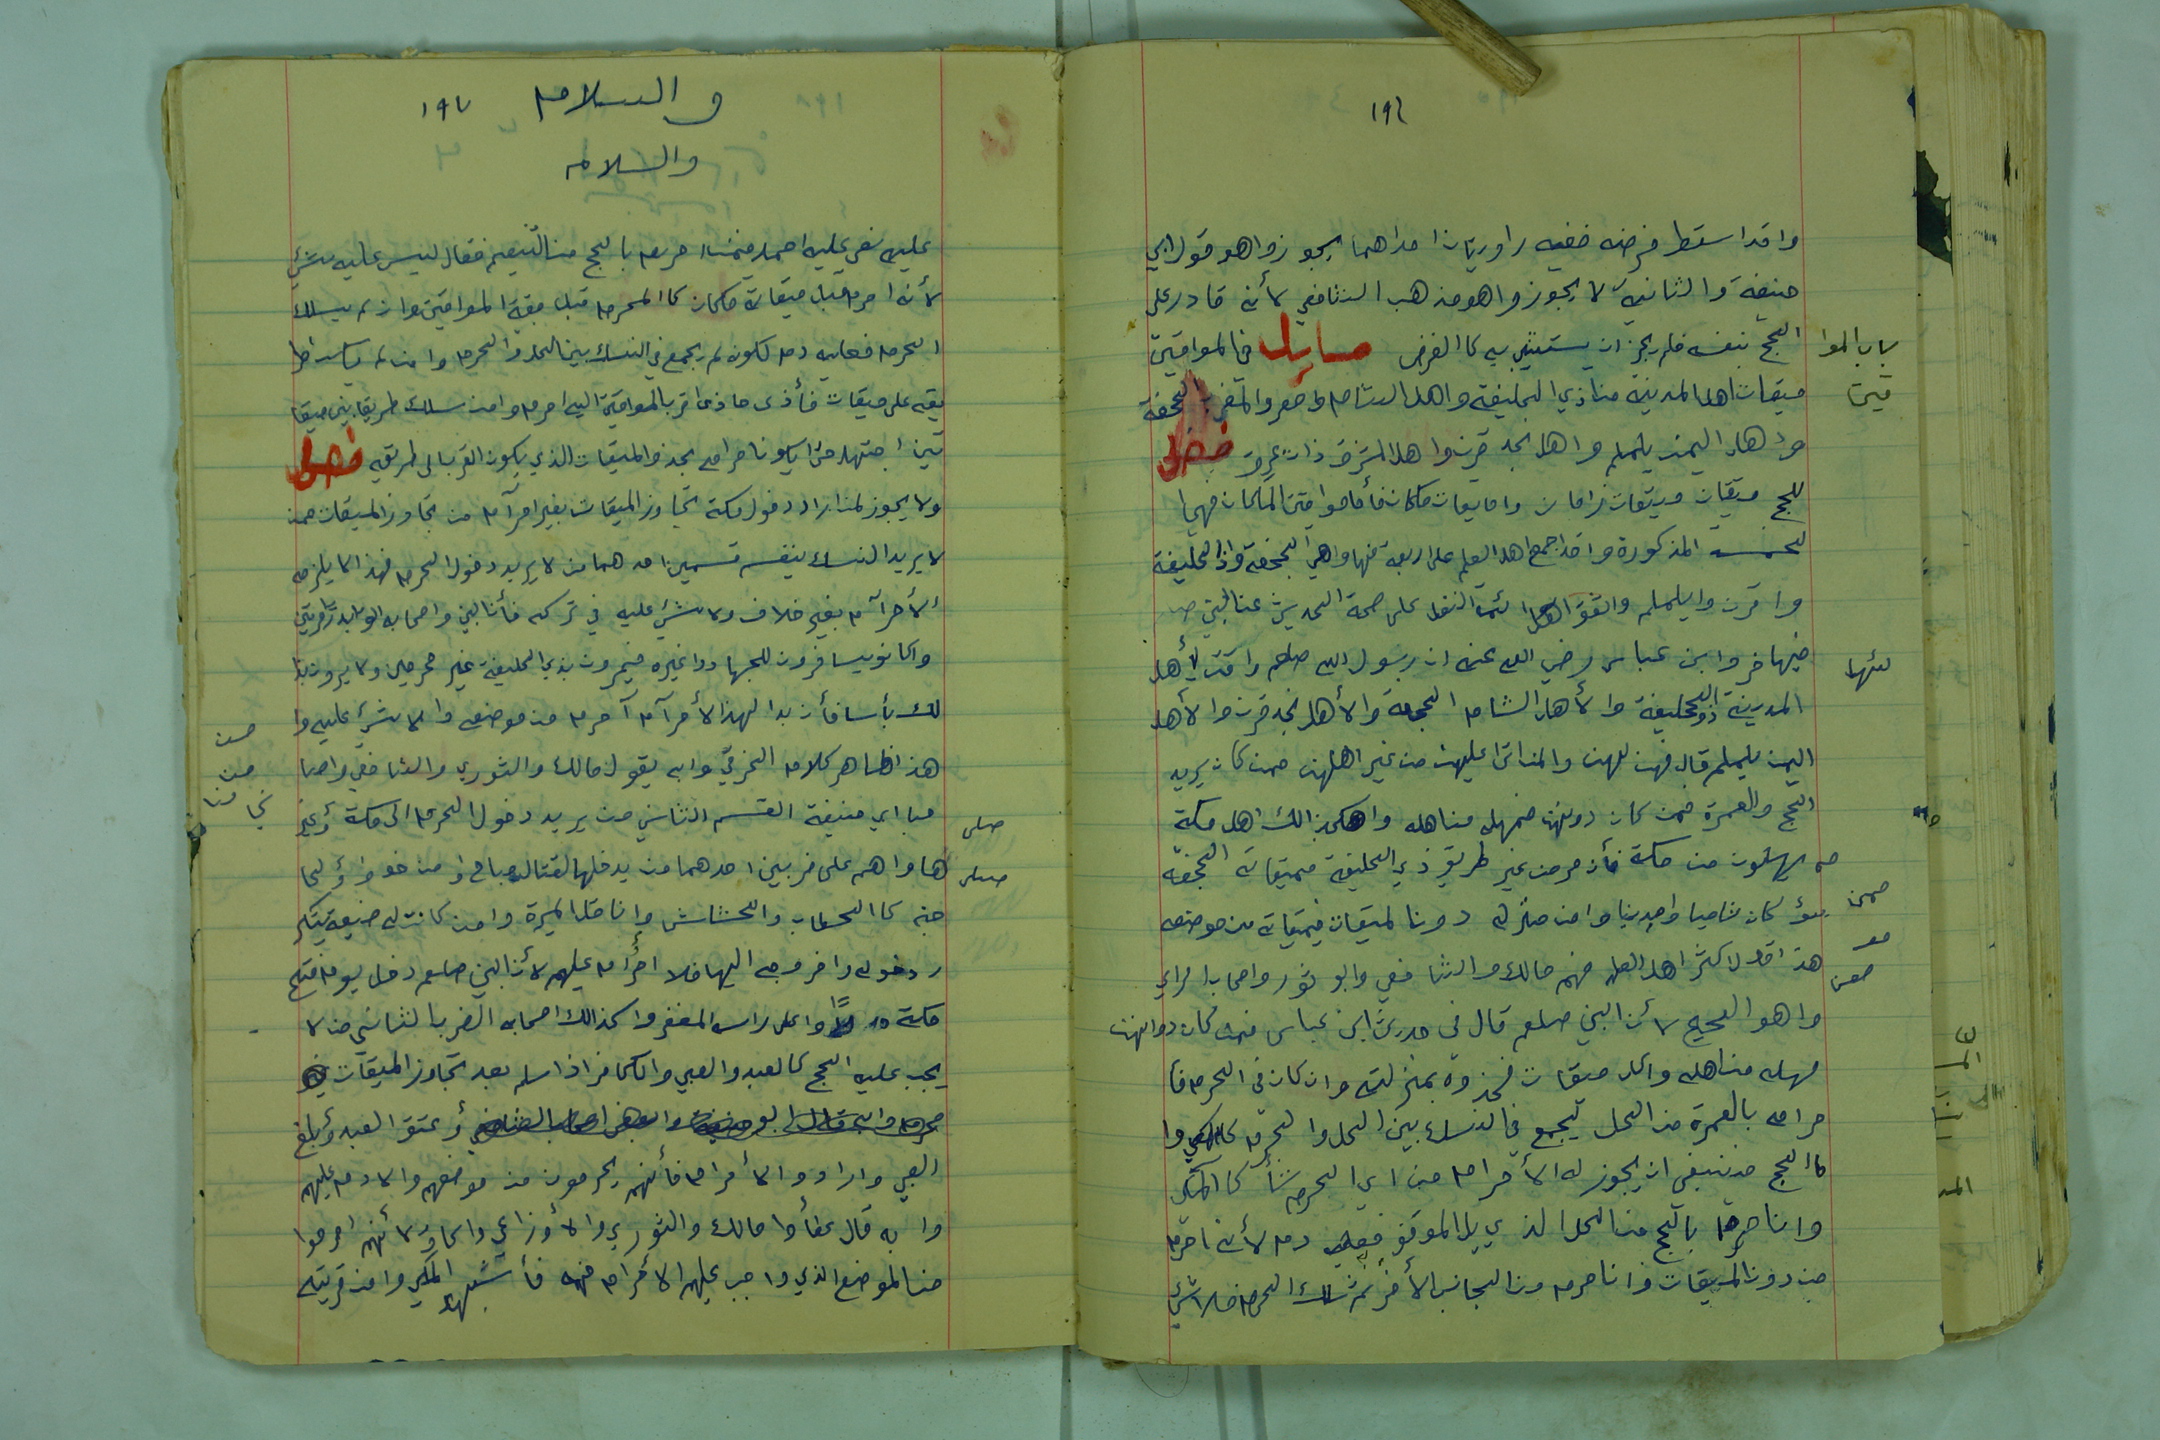 ١٩٦
واقد اسقط فرضه ففيه راوريتان احداهما يجوز واهو قول ابي
حنيفة والثانية لا يجوز واهو مذهب الشافعي لأنه قادر على
الحج بنفسه فلم يجز ان يستنيب به كا الفرض مسايل في المواقيت
باب الموا
قيت
ميقات اهل المدينة من ذي الحليفة واهل الشام وامصر والمغرب الجحفة
واهل اليمن يلملم واهل نجد قرن واهل المشرق ذات عرق فصل
للحج ميقات ميقات زمان واميقات مكان فأما مواقيت المكان فهي ا
لخمسة المذكورة واقد اجمع اهل العلم على اربعة منها واهي الجحفة واذا الحليفة
وا قرن وايلملم واتفق ائمة النقل على صحة الحديث عن النبي ص
فيها فروا ابن عباس رضي الله عنه ان رسول الله صلعم وا قت لأهل
لعلها
المدينة ذو الحليفة والأهل الشام الجحفة والأهل نجد قرن والأهل
اليمن يلملم قال فهن لهن والمن اتى عليهن من غير اهلهن ممن كان يريد
الحج والعمرة فمن كان دونهن فمهله من اهله واهكذالك اهل مكة
يهلون من مكة فأن مر من غير طريق ذي الحليفة فميقاته الجحفة
سوا كان شاميا وامدينا وامن منزله دون الميقات فميقاته من موضعه
ممن
هذا قول اكثر اهل العلم منهم مالك والشافعي وابو ثور واصحاب الراي
واهو الصحيح لأن النبي صلعم قال في حديث ابن عباس فمن كان دوانهن
مهله من اهله واكل ميقات فحذوه بمنزلته وان كان في الحرم فأ
حرامه بالعمرة من الحل ليجمع في النسك بين الحل والحرم كالمكي وا
كا الحج فينبغي ان يجوز له الأحرام من اي الحرم شأ كا المكي
وان احرم بالحج من الحل الذي يلي الموقف فعليه دم لأنه احرم
من دون الميقات وان احرم من الجانب الأخر ثم سلك الحرم فلا شئ
والسلام ١٩٧
والسلام
عليه نص عليه احمد فمن احرم بالحج من التنعيم فقال ليس عليه شئ
لأنه احرم قبل ميقاته فكان كا المحرم قبل بقية المواقيت وان لم يسلك
الحرم فعليه دم لكونه لم يجمع في النسك بين الحل والحرم وامن لم يكن طر
يقه على ميقات فأذى حاذى اقرب المواقيت اليه احرم وامن سلك طريقا بين ميقا
تين اجتهد حتى ايكون احرامه بحذو الميقات الذي يكون اقرب الى طريقه فصل
ولا يجوز لمن اراد دخول مكة تجاوز الميقات بغير احرآم من تجاوز الميقات ممن
لا يريد النسك ينقسم قسمين احدهما من لا يريد دخول الحرم فهذا لا يلزمه
الأحرآم بغير خلاف ولا شئ عليه في تركه فأن النبي واصحابه اتوا بدر مرتين
واكانو يسافرون للجهاد وا غيره فيمرون بذي الحليفة غير محرمين ولا يرون بذا
لك بأسا فأن بدا لهذا الأحرآم آحرم من موضعه والا شئ عليه وا
هذا ظاهر كلام الخرقي وابه يقول مالك والثوري والشافعي واصا
حبا ابي حنيفة القسم الثاني من يريد دخول الحرم الى مكة أو غير
ها واهم على ضربين احدهما من يدخلها لقتال مباح وا من خوف أو لحا
جة كا الحطاب والحشاش وا ناقل الميرة وامن كانت له ضيعة يتكر
ر دخوله واخروجه اليها فلا احرام عليهم لأن النبي صلعم دخل يوم فتح
مكة واعلى راسه المغفر واكذالك اصحابه الضرب الثاني من لا
يجب عليه الحج كا لعبد والصبي والكافر اذا اسلم بعد تجاوز الميقات
أو عتق العبد وأبلغ
الصبي وارادو الأحرام فأنهم يحرمون من موضعهم والا دم عليهم
وابه قال عطأ وا مالك والثوري والأوزاعي واسحاق لأنهم احرموا
من الموضع الذي واجب عليهم الأحرام منه فأشبهوا المكي وا من قريته